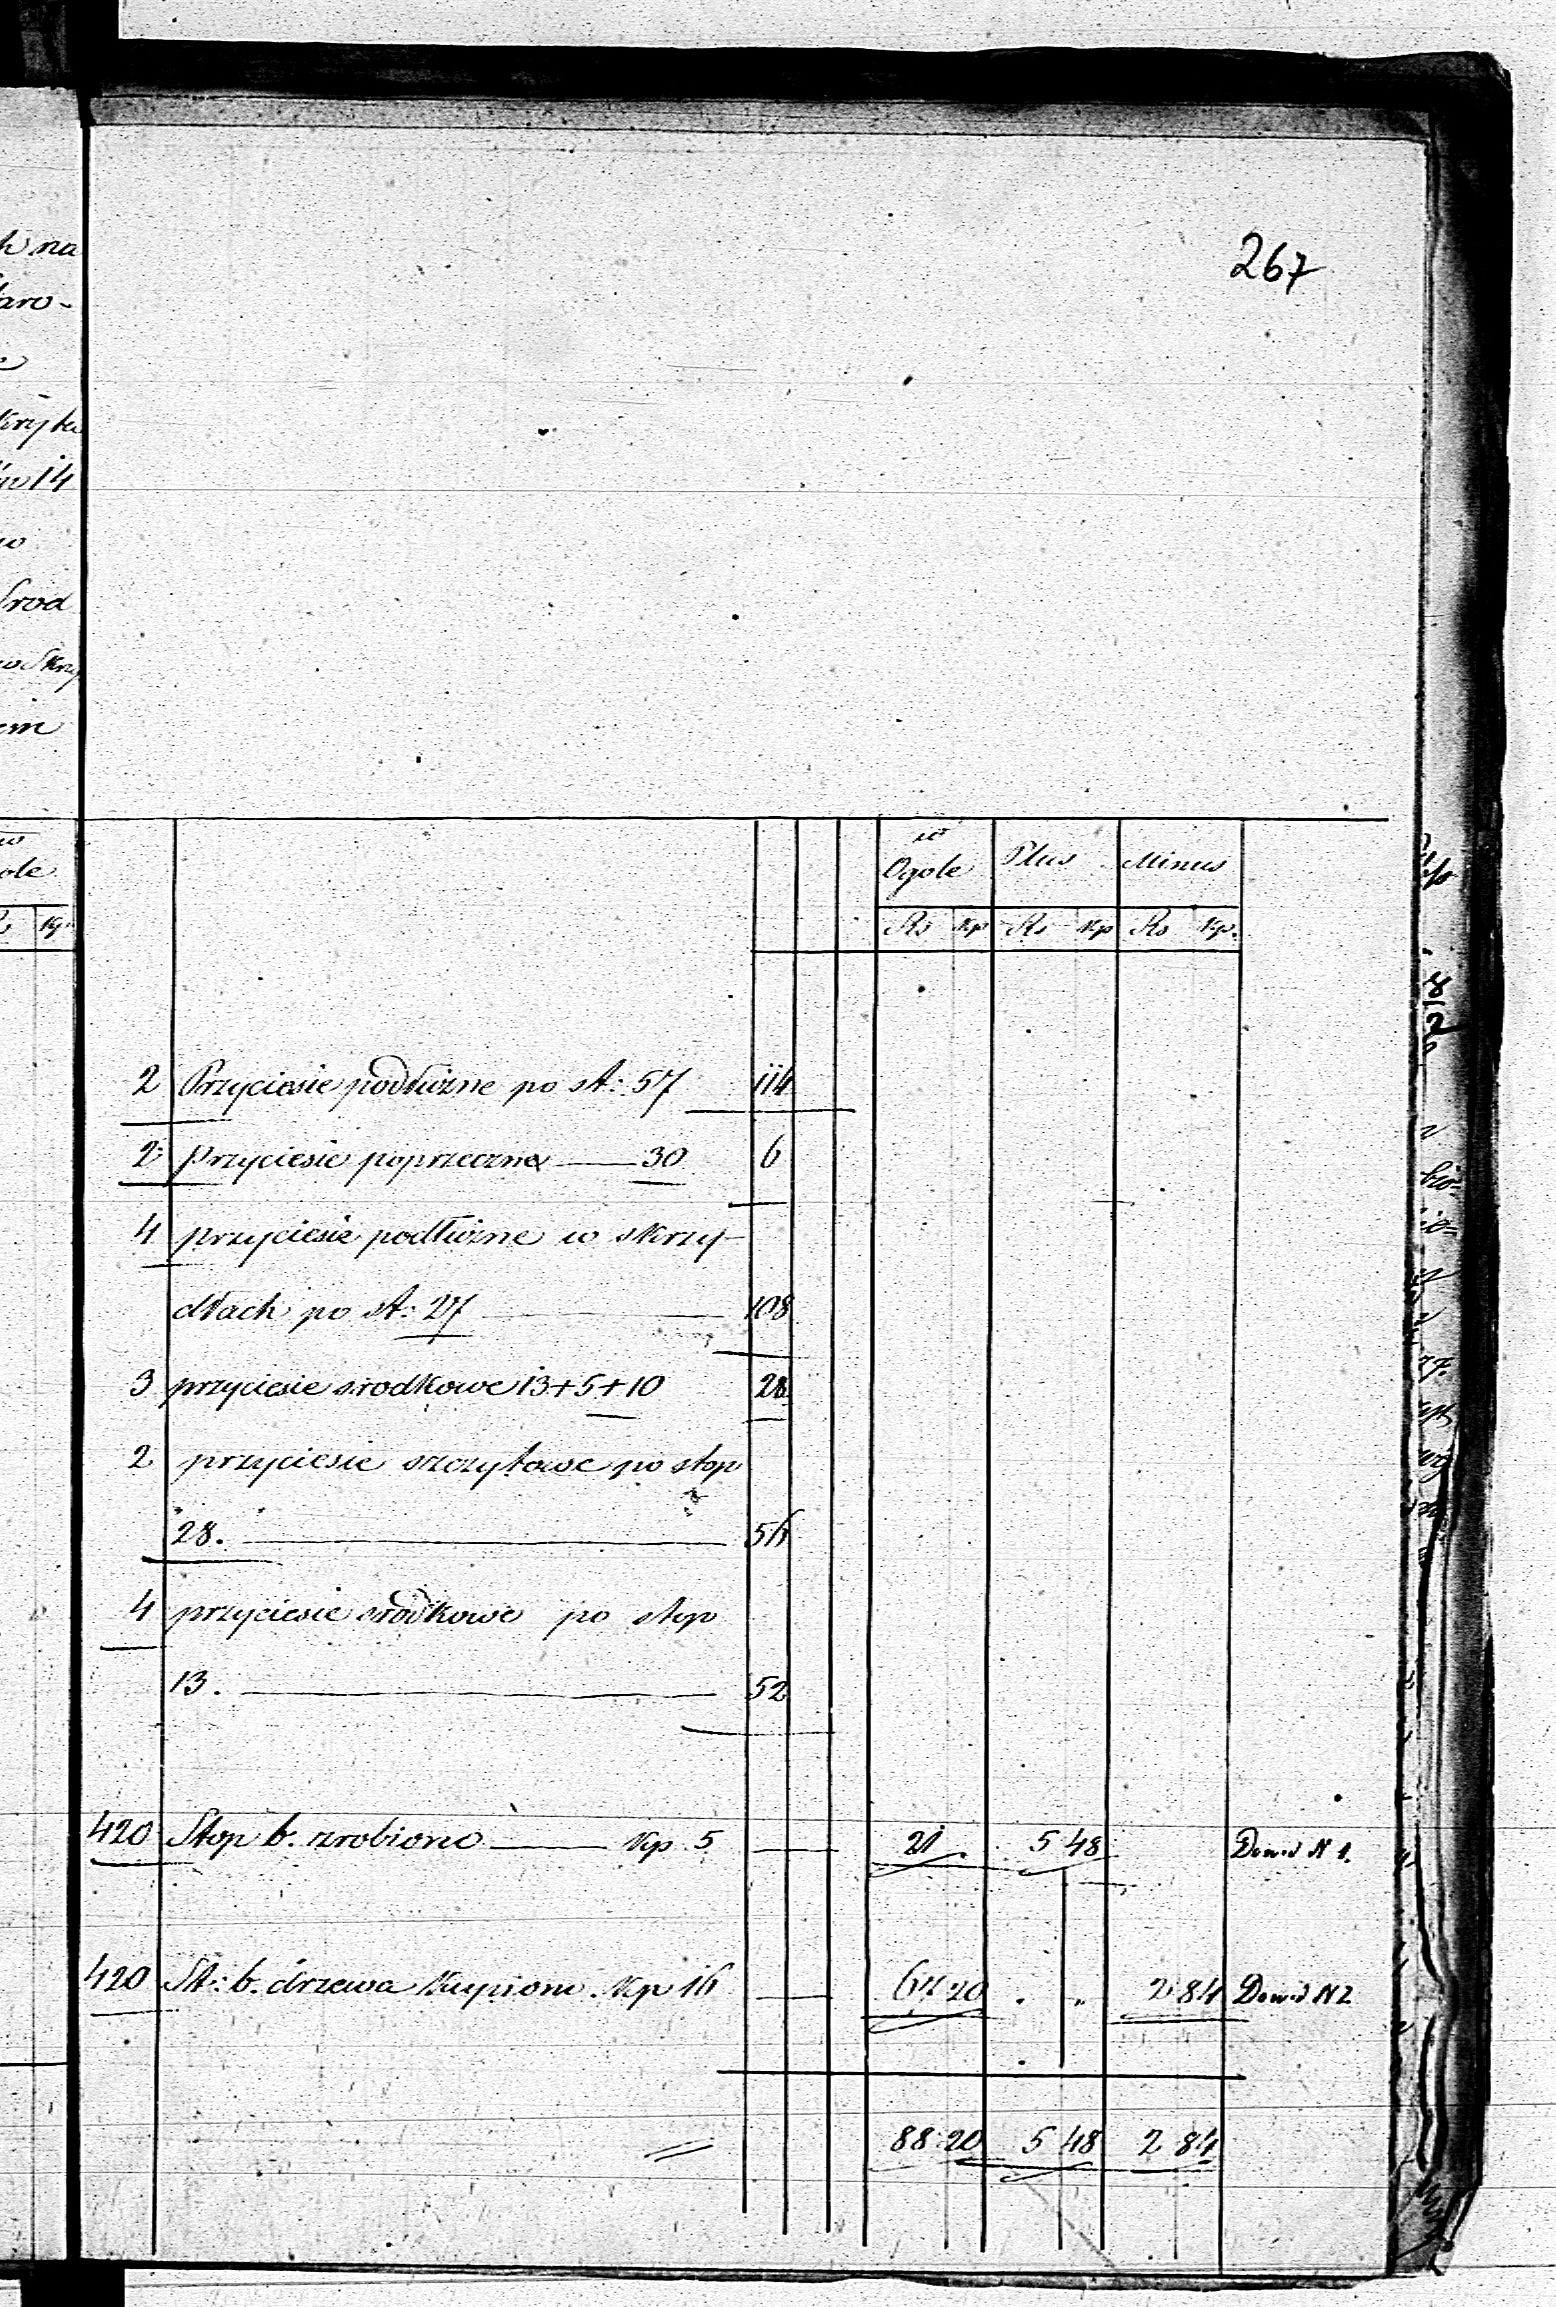 267
h na
aro-
kryte
14
Srod
Skrzy
em
w
w
ole
Ogole Plus Minus
Kp. Rs Kp Rs Kp Rs Kp.
2 Przyciesie podłużne po st: 57 114
2 przyciesie poprzeczne 30 6
4 przyciesie podłużne w skrzy-
dłach po st: 27 108
3 przyciesie srodkowe 13+5+10 28
2 przyciesie szczytowe po stop
28. 56
4 przyciesie srodkowe po stop
13. 52
420 Stop b. zrobiono Kp. 5 21 . 5 48 Dowód N 1.
420 St: b. drzewa kupiono. Kp 16 67 20 . „ 2 84 Dowód N 2
88 20 5 48 2 84